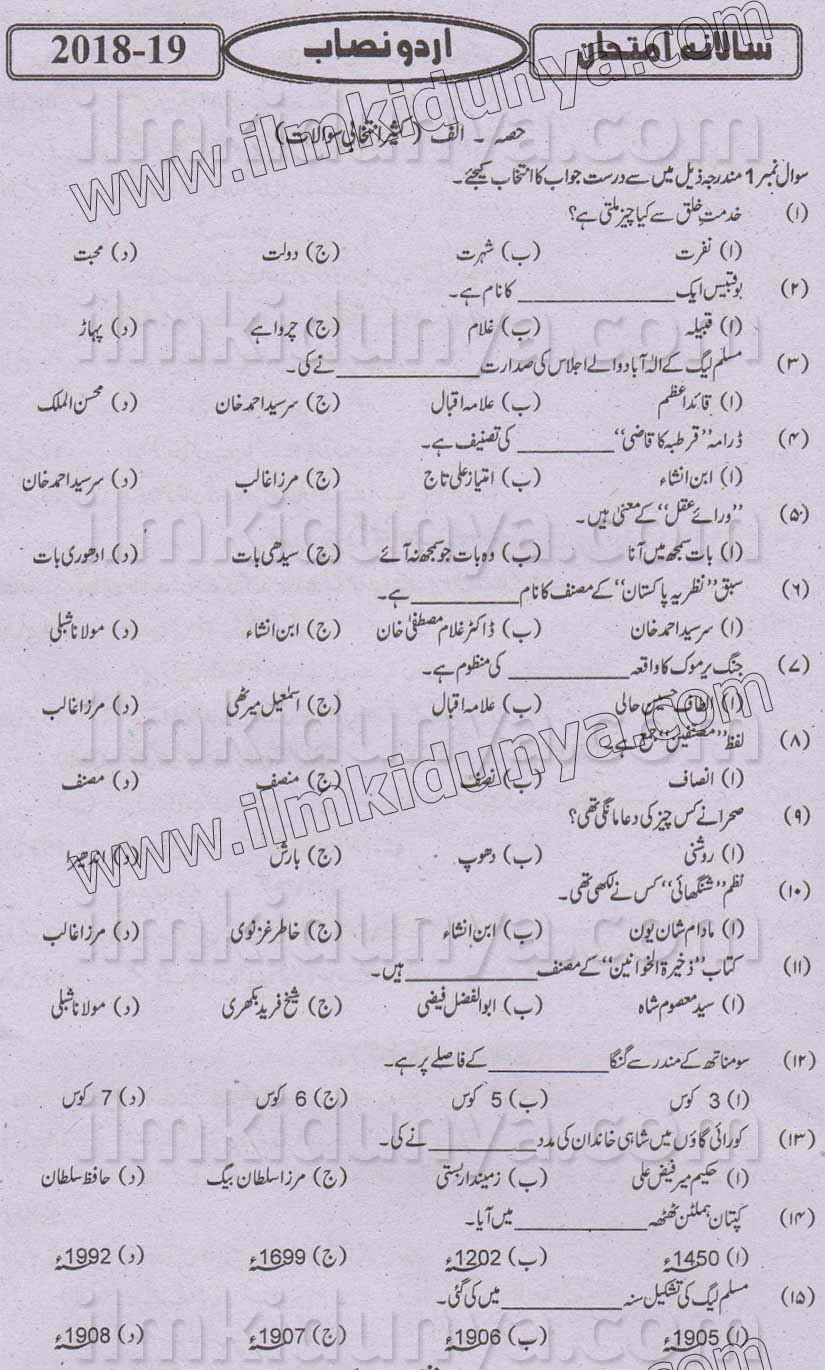 سالانہ امتحان اردو نصاب 2018-19
حصہ ۔ الف (کثیر انتخابی سوالات)
سوال نمبر 1 مندرجہ ذیل میں سے درست جواب کا انتخاب کیجئے۔
(۱) خدمتِ خلق سے کیا چیز ملتی ہے؟
(ا) نفرت (ب) شہرت (ج) دولت (د) محبت
(۲) بوقبیس ایک ______ کا نام ہے۔
(ا) قبیلہ (ب) غلام (ج) چرواہے (د) پہاڑ
(۳) مسلم لیگ کے الٰہ آباد والے اجلاس کی صدارت ______ نے کی۔
(ا) قائداعظم (ب) علامہ اقبال (ج) سرسید احمد خان (د) محسن الملک
(۴) ڈرامہ ”قرطبہ کا قاضی“ ______ کی تصنیف ہے۔
(ا) ابن انشاء (ب) امتیاز علی تاج (ج) مرزا غالب (د) سرسید احمد خان
(۵) ”ورائے عقل“ کے معنیٰ ہیں۔
(ا) بات سمجھ میں آنا (ب) وہ بات جو سمجھ نہ آئے (ج) سیدھی بات (د) ادھوری بات
(۶) سبق ”نظریہ پاکستان“ کے مصنف کا نام ______ ہے۔
(ا) سرسید احمد خان (ب) ڈاکٹر غلام مصطفیٰ خان (ج) ابن انشاء (د) مولانا شبلی
(۷) جنگ یرموک کا واقعہ ______ کی منظوم ہے۔
(ا) الطاف حسین حالی (ب) علامہ اقبال (ج) اسمٰعیل میرٹھی (د) مرزا غالب
(۸) لفظ ”مصنفین“ جمع ہے۔
(ا) انصاف (ب) نصف (ج) منصف (د) مصنف
(۹) صحرا نے کس چیز کی دعا مانگی تھی؟
(ا) روشنی (ب) دھوپ (ج) بارش (د) اندھیرا
(۱۰) نظم ”شنگھائی“ کس نے لکھی تھی۔
(ا) مادام شان یون (ب) ابن انشاء (ج) خاطر غزنوی (د) مرزا غالب
(۱۱) کتاب ”ذخیرۃ الخوانین“ کے مصنف ______ ہیں۔
(ا) سید معصوم شاہ (ب) ابوالفضل فیضی (ج) شیخ فرید بکھری (د) مولانا شبلی
(۱۲) سومناتھ کے مندر سے گنگا ______ کے فاصلے پر ہے۔
(ا) 3 کوس (ب) 5 کوس (ج) 6 کوس (د) 7 کوس
(۱۳) کورائی گاؤں میں شاہی خاندان کی مدد ______ نے کی۔
(ا) حکیم میر فیض علی (ب) زمیندار بستی (ج) مرزا سلطان بیگ (د) حافظ سلطان
(۱۴) کپتان ہملٹن ٹھٹھہ ______ میں آیا۔
(ا) 1450ء (ب) 1202ء (ج) 1699ء (د) 1992ء
(۱۵) مسلم لیگ کی تشکیل سنہ ______ میں کی گئی۔
(ا) 1905ء (ب) 1906ء (ج) 1907ء (د) 1908ء
www.ilmkidunya.com
www.ilmkidunya.com
ilmkidunya.com
ilmkidunya.com
ilmkidunya.com
ilmkidunya.com
ilmkidunya.com
ilmkidunya.com
ilmkidunya.com